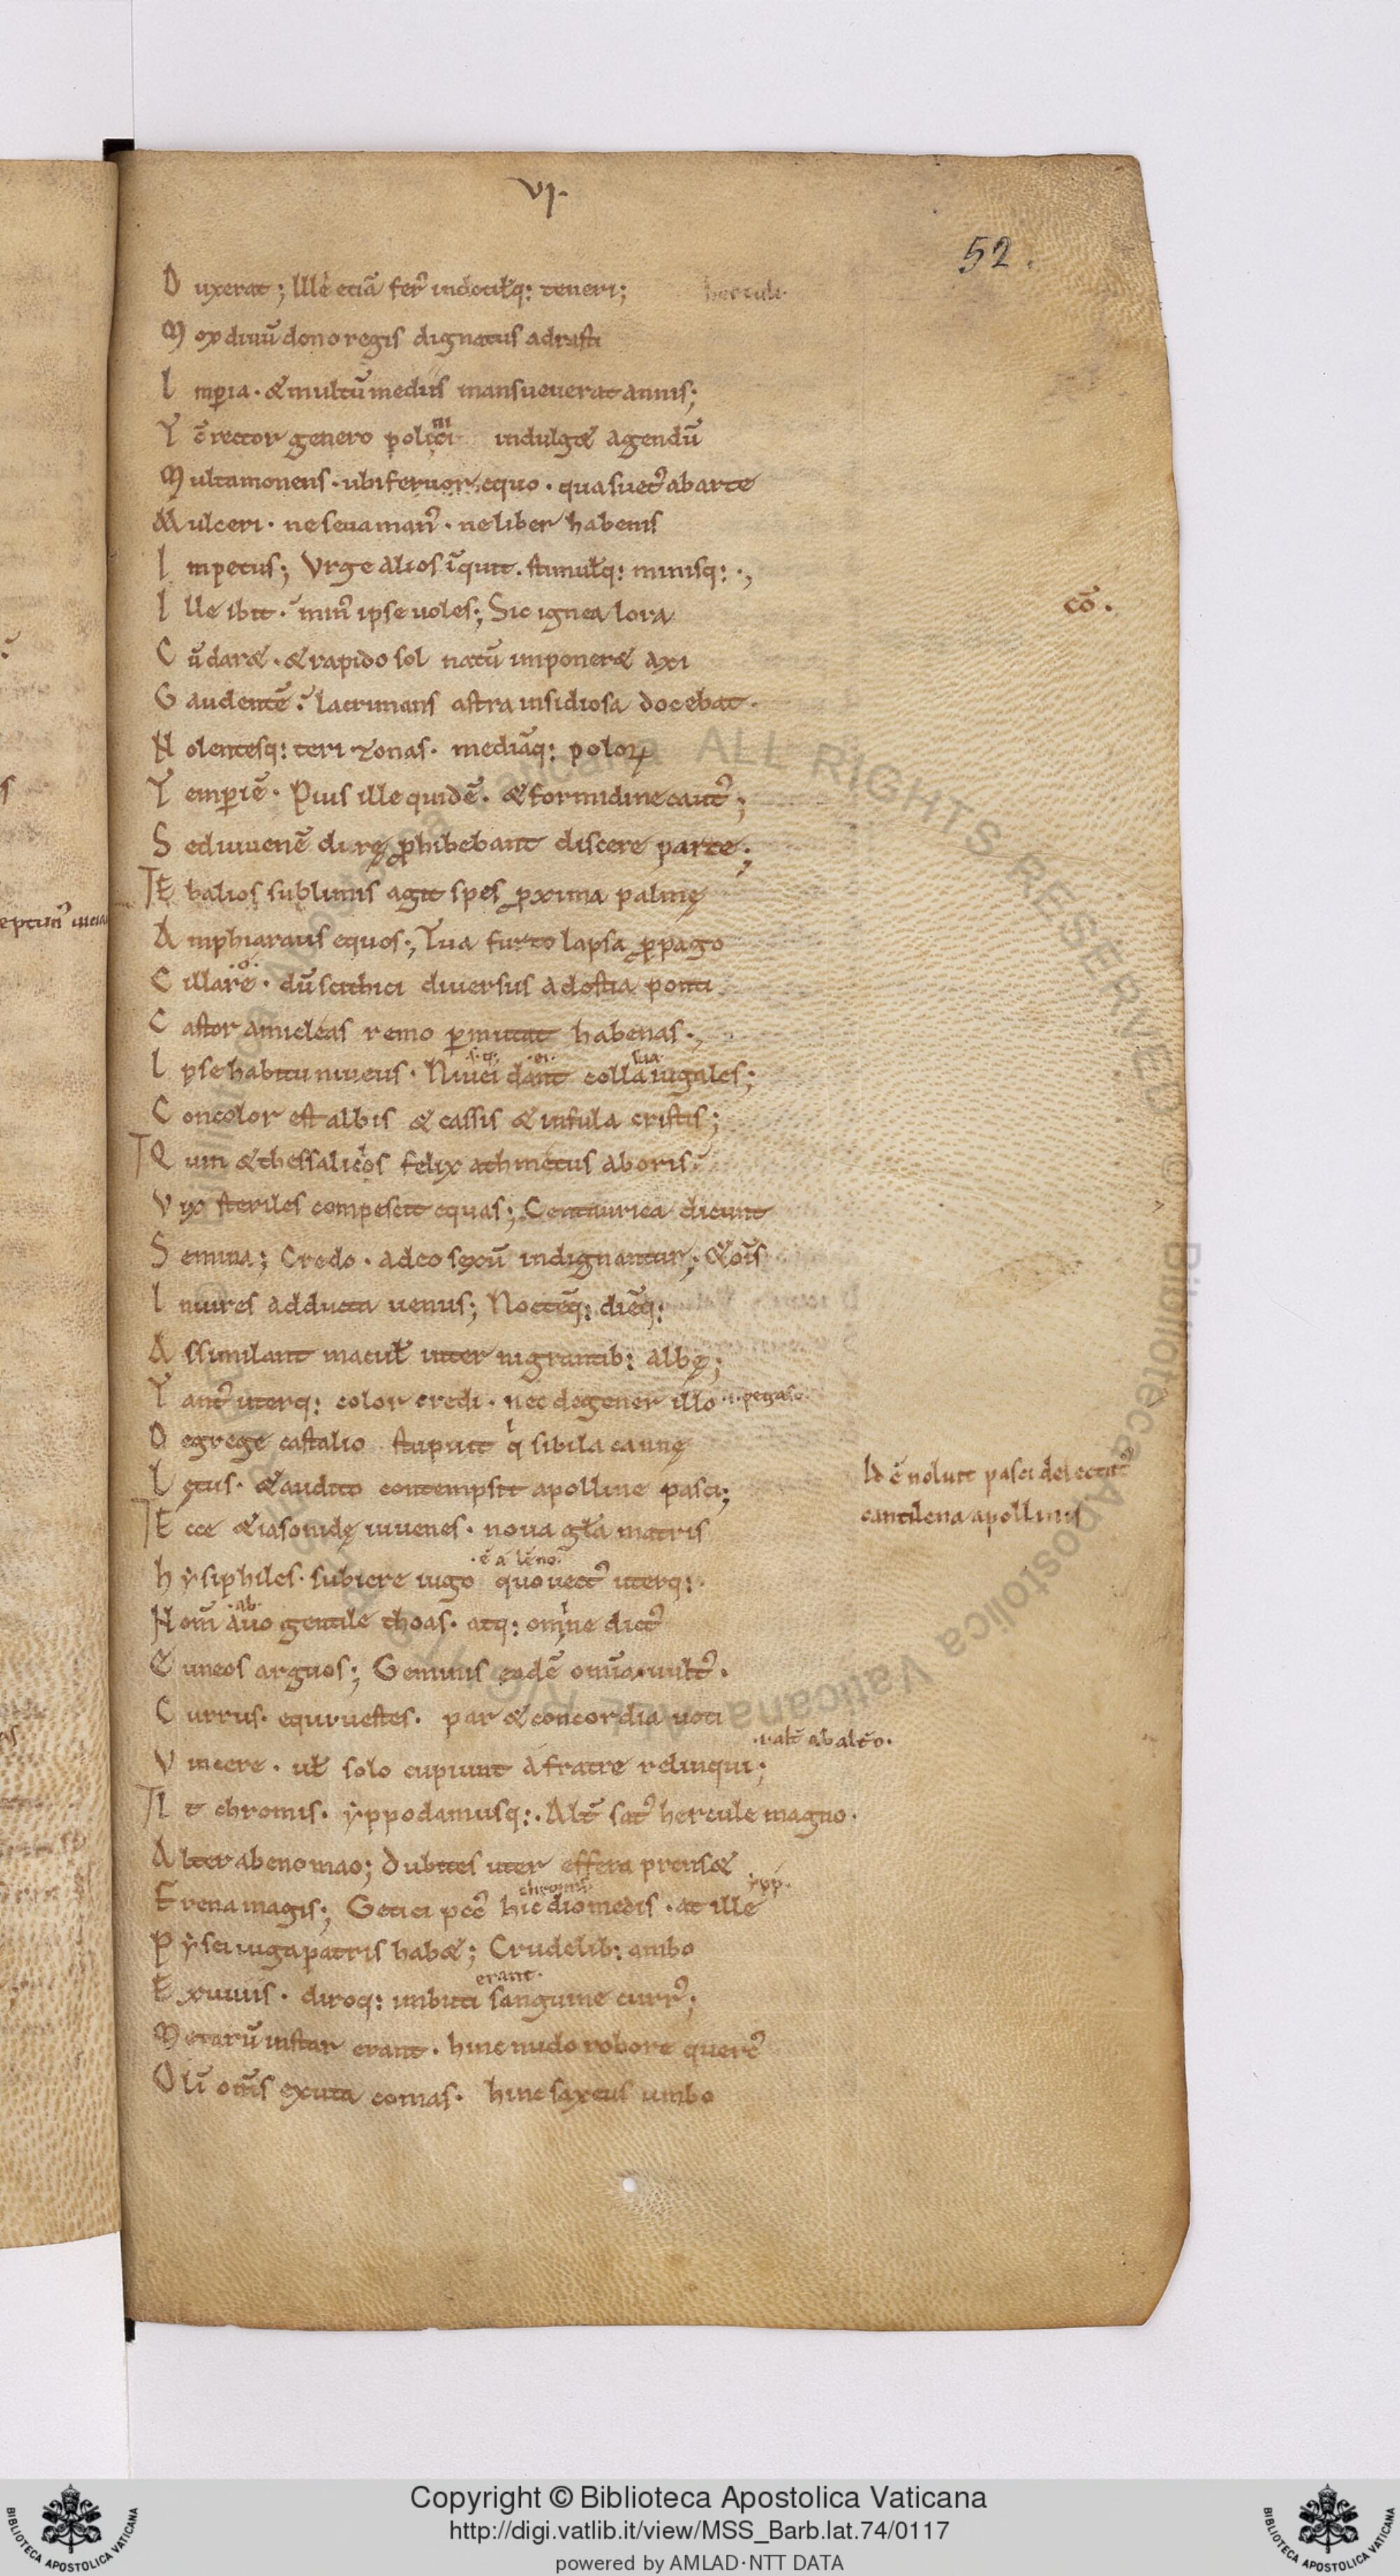 VI.
52.
D uxerat; Ille etiã fer̛ indocilꝉq: teneri; herculi.
M ox diuũ dono regis dignatus adrasti
I mꝑia. & multũ mediis mansueuerat annis;
T c̃ rector genero polici ni indulg& agendũ
M ulta monens. ubi feruor equo. qua suet᾽ ab arte
M ulceri. ne seua man᾽. ne liber habenis
I mpetus; Vrge alios ĩquit. stimulꝉq: minisq:.,
I lle ibit. min᾽ ipse uoles; Sic ignea lora
cõ.
C ũ dar&. & rapido sol natũ imponer& axi
G audentẽ. lacrimans astra insidiosa docebat.
N olentesq: teri zonas. mediãq: poloꝝ
T emꝑiẽ. Pius ille quidẽ. & formidine caut᾽;
S ed iuuenẽ dirę ꝓhibebant discere parce;
E balios sublimis agit spes ꝓxima palmę
A mphiaraus equos; Tua furto lapsa ꝓpago
.o.
C illare. dũ scithici diuersus ad ostia ponti
C astor amicleas remo ꝑmutat habenas.,
.ei. sua.
I pse habitu niueus. Niuei dant colla iugales;
C oncolor est albis & cassis & infula cristis;
Q uin & thessalicos felix athmetus ab oris.
V ix steriles compescit equas; Centaurica dicunt
S emina; Credo. adeo sexũ indignantur; & oĩs
I n uires adducta uenus; Noctẽq: diẽq:
A ssimilant maculꝉ inter nigrantib: albę;
T ant᾽ uterq: color credi. nec degener illo .i. pegaso
D e grege castalio stupuit q̇ sibila cannę
L ętus. & audito contempsit apolline pasci;
Id ẽ noluit pasci delectat᾽
cantilena apollinis
E cce & iasonidę iuuenes. noua gꝉa matris
.ẽ a lẽno.
h ẏsiphiles. subiere iugo quo uect᾽ uterq:.
.ab.
N om̃ auo gentile thoas. atq: omine dict᾽
E uneos arguo; Gemini eadẽ omĩa uult᾽.
C urrus. equi uestes. par & concordia uoti
.i. alt̃ ab alt̃o.
V incere. uꝉ solo cupiunt a fratre relinqui;
I t chromis. ẏppodamusq:. Alt̃ sat᾽ hercule magno.
A lter ab enomao; Dubites uter effera prens&
chromis ypp.
F rena magis; Getici pec᾽ hic diomedis. at ille
P ẏsei iuga patris hab&; Crudelib: ambo
erant.
E xuuiis. diroq: imbuti sanguine curr᾽;
M etarũ instar erant. hinc nudo robore querc᾽
O lĩ om̃s exuta comas. hinc saxeus umbo
Copyright © Biblioteca Apostolica Vaticana
http://digi.vatlib.it/view/MSS_Barb.lat.74/0117
powered by AMLAD·NTT DATA